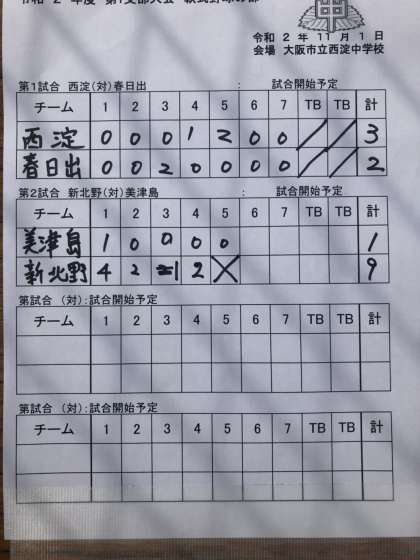 令和 2 年度 第1支部大会 軟式野球の部
中
令和 2 年 11 月 1 日
会場 大阪市立西淀中学校
第1試合 西淀(対)春日出 : 試合開始予定
チーム 1 2 3 4 5 6 7 TB TB 計
西淀 0 0 0 1 2 0 0 / / 3
春日出 0 0 2 0 0 0 0 / / 2
第2試合 新北野(対)美津島 : 試合開始予定
チーム 1 2 3 4 5 6 7 TB TB 計
美津島 1 0 0 0 0 1
新北野 4 2 1 2 X 9
第試合 (対):試合開始予定
チーム 1 2 3 4 5 6 7 TB TB 計
第試合 (対):試合開始予定
チーム 1 2 3 4 5 6 7 TB TB 計